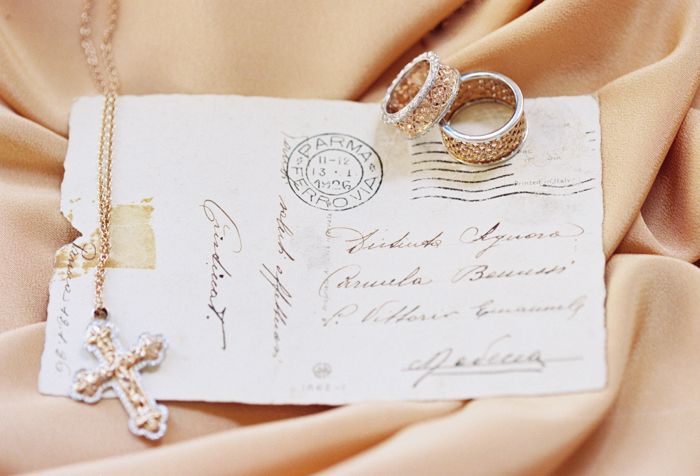 PARMA
11-12
13 · 1
1926
FERROVIA
Printed in Italy
saluti affettuosi
Distinta Signora
Carmela Benussi
Vittorio Emanuele
Modena